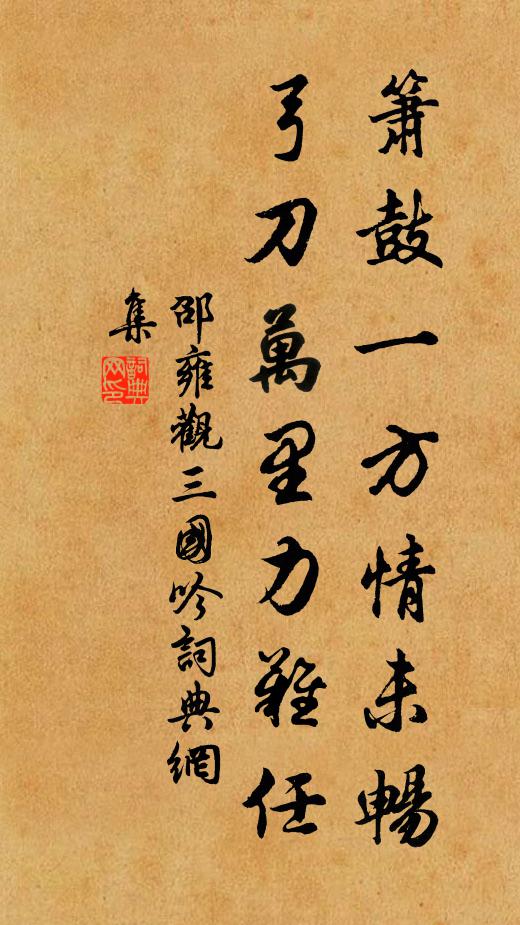 簫鼓一方情未暢
弓刀萬里力難任
邵雍觀三國吟詞典網
集
詞典网印